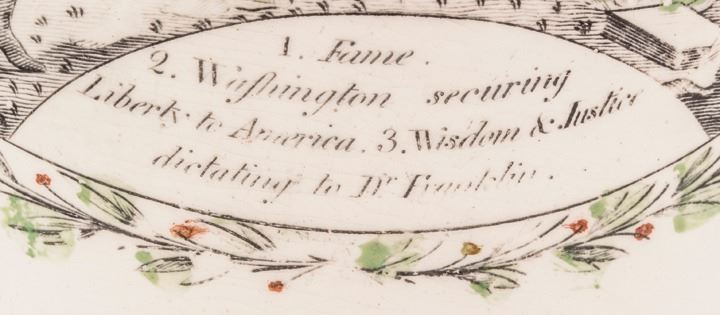 1. Fame.
2. Waſhington securing
Liberty to America. 3. Wisdom & Justice
dictating to Dr Franklin.